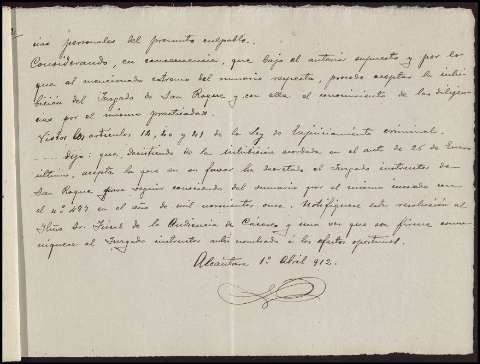 nas personales del presunto culpable.
Considerando, en consecuencia, que bajo el anterior supuesto y por lo
que al mencionado extremo del sumario respecta, procede aceptar la inhi-
bición del Juzgado de San Roque y con ella el conocimiento de las diligen-
cias por el mismo practicadas.
Vistos los artículos 14, 40 y 41 de la Ley de Enjuiciamiento criminal.
dijo: que, desistiendo de la inhibición acordada en el auto de 25 de Enero
último, acepta la que en su favor ha decretado el Juzgado instructor de
San Roque para seguir conociendo del sumario por el mismo incoado con
el nº 487 en el año de mil novecientos once. Notifíquese esta resolución al
Iltmo Sr. Fiscal de la Audiencia de Cáceres y una vez que sea firme comu-
níquese al Juzgado instructor antes nombrado á los efectos oportunos.
Alcántara 1º Abril 912.